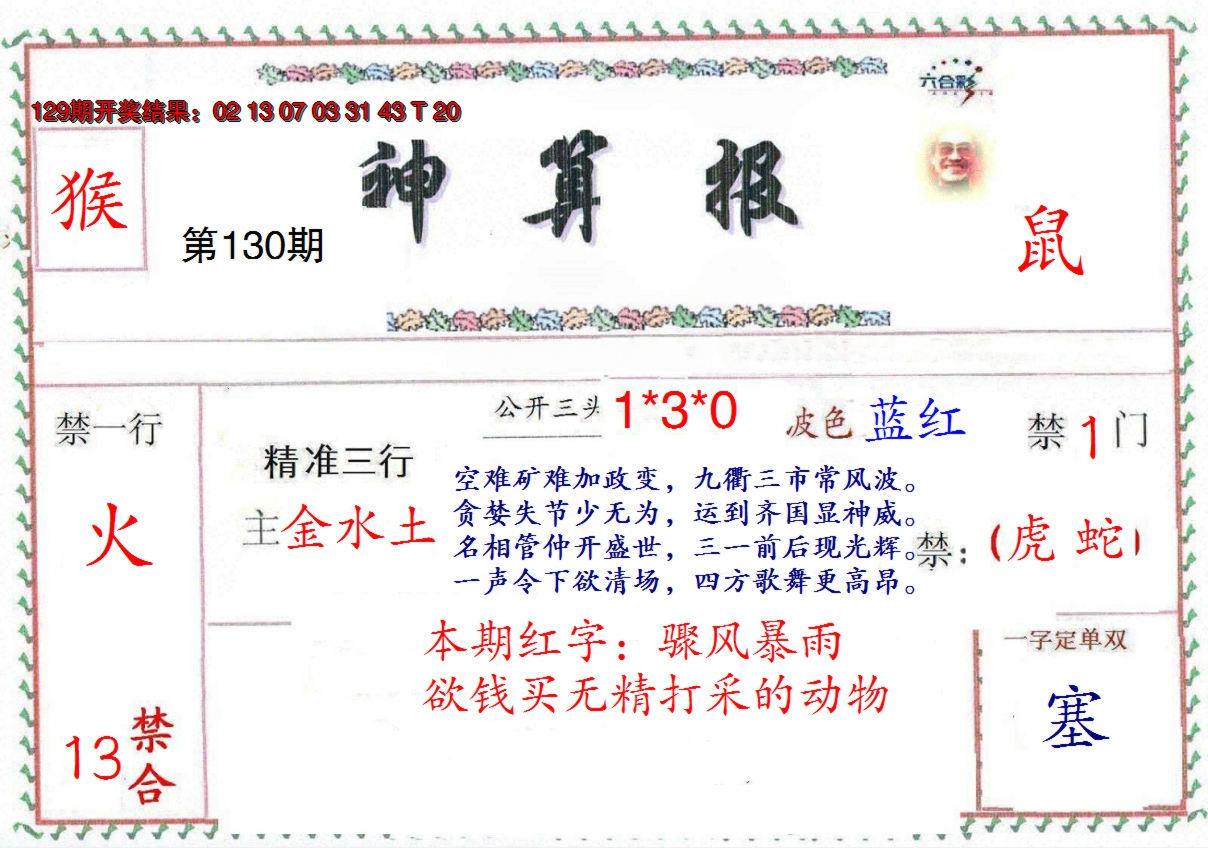 六合彩
129期开奖结果：02 13 07 03 31 43 T 20
神算报
猴
第130期
鼠
公开三头 1*3*0
波色 蓝红
禁一行
禁1门
精准三行
主金水土
空难矿难加政变，九衢三市常风波。
贪婪失节少无为，运到齐国显神威。
名相管仲开盛世，三一前后现光辉。
一声令下欲清场，四方歌舞更高昂。
火
禁：（虎 蛇）
本期红字：骤风暴雨
欲钱买无精打采的动物
一字定单双
塞
13禁合